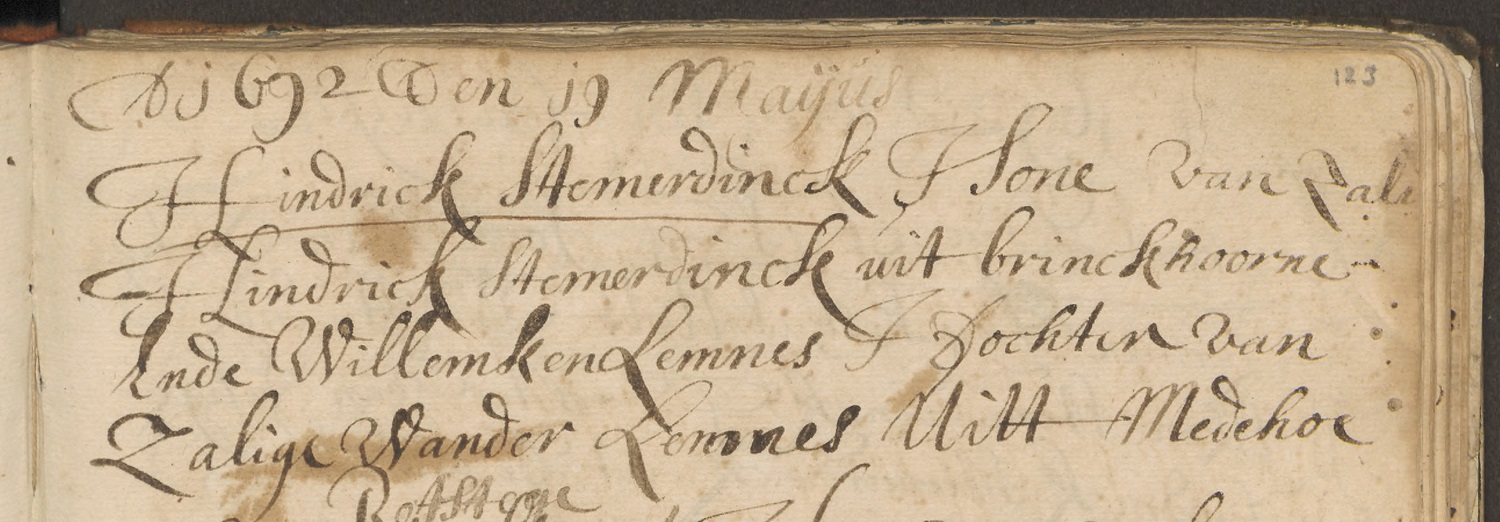 Dj 1692 Den 19 Maijus
123
Hindrick Stemerdinck J Sone van Zali
Hindrick Stemerdinck uit brinckhoorne
Ende Willemken Lemnes J Dochter van
Zalige Wander Lemmes Uitt Medehoe